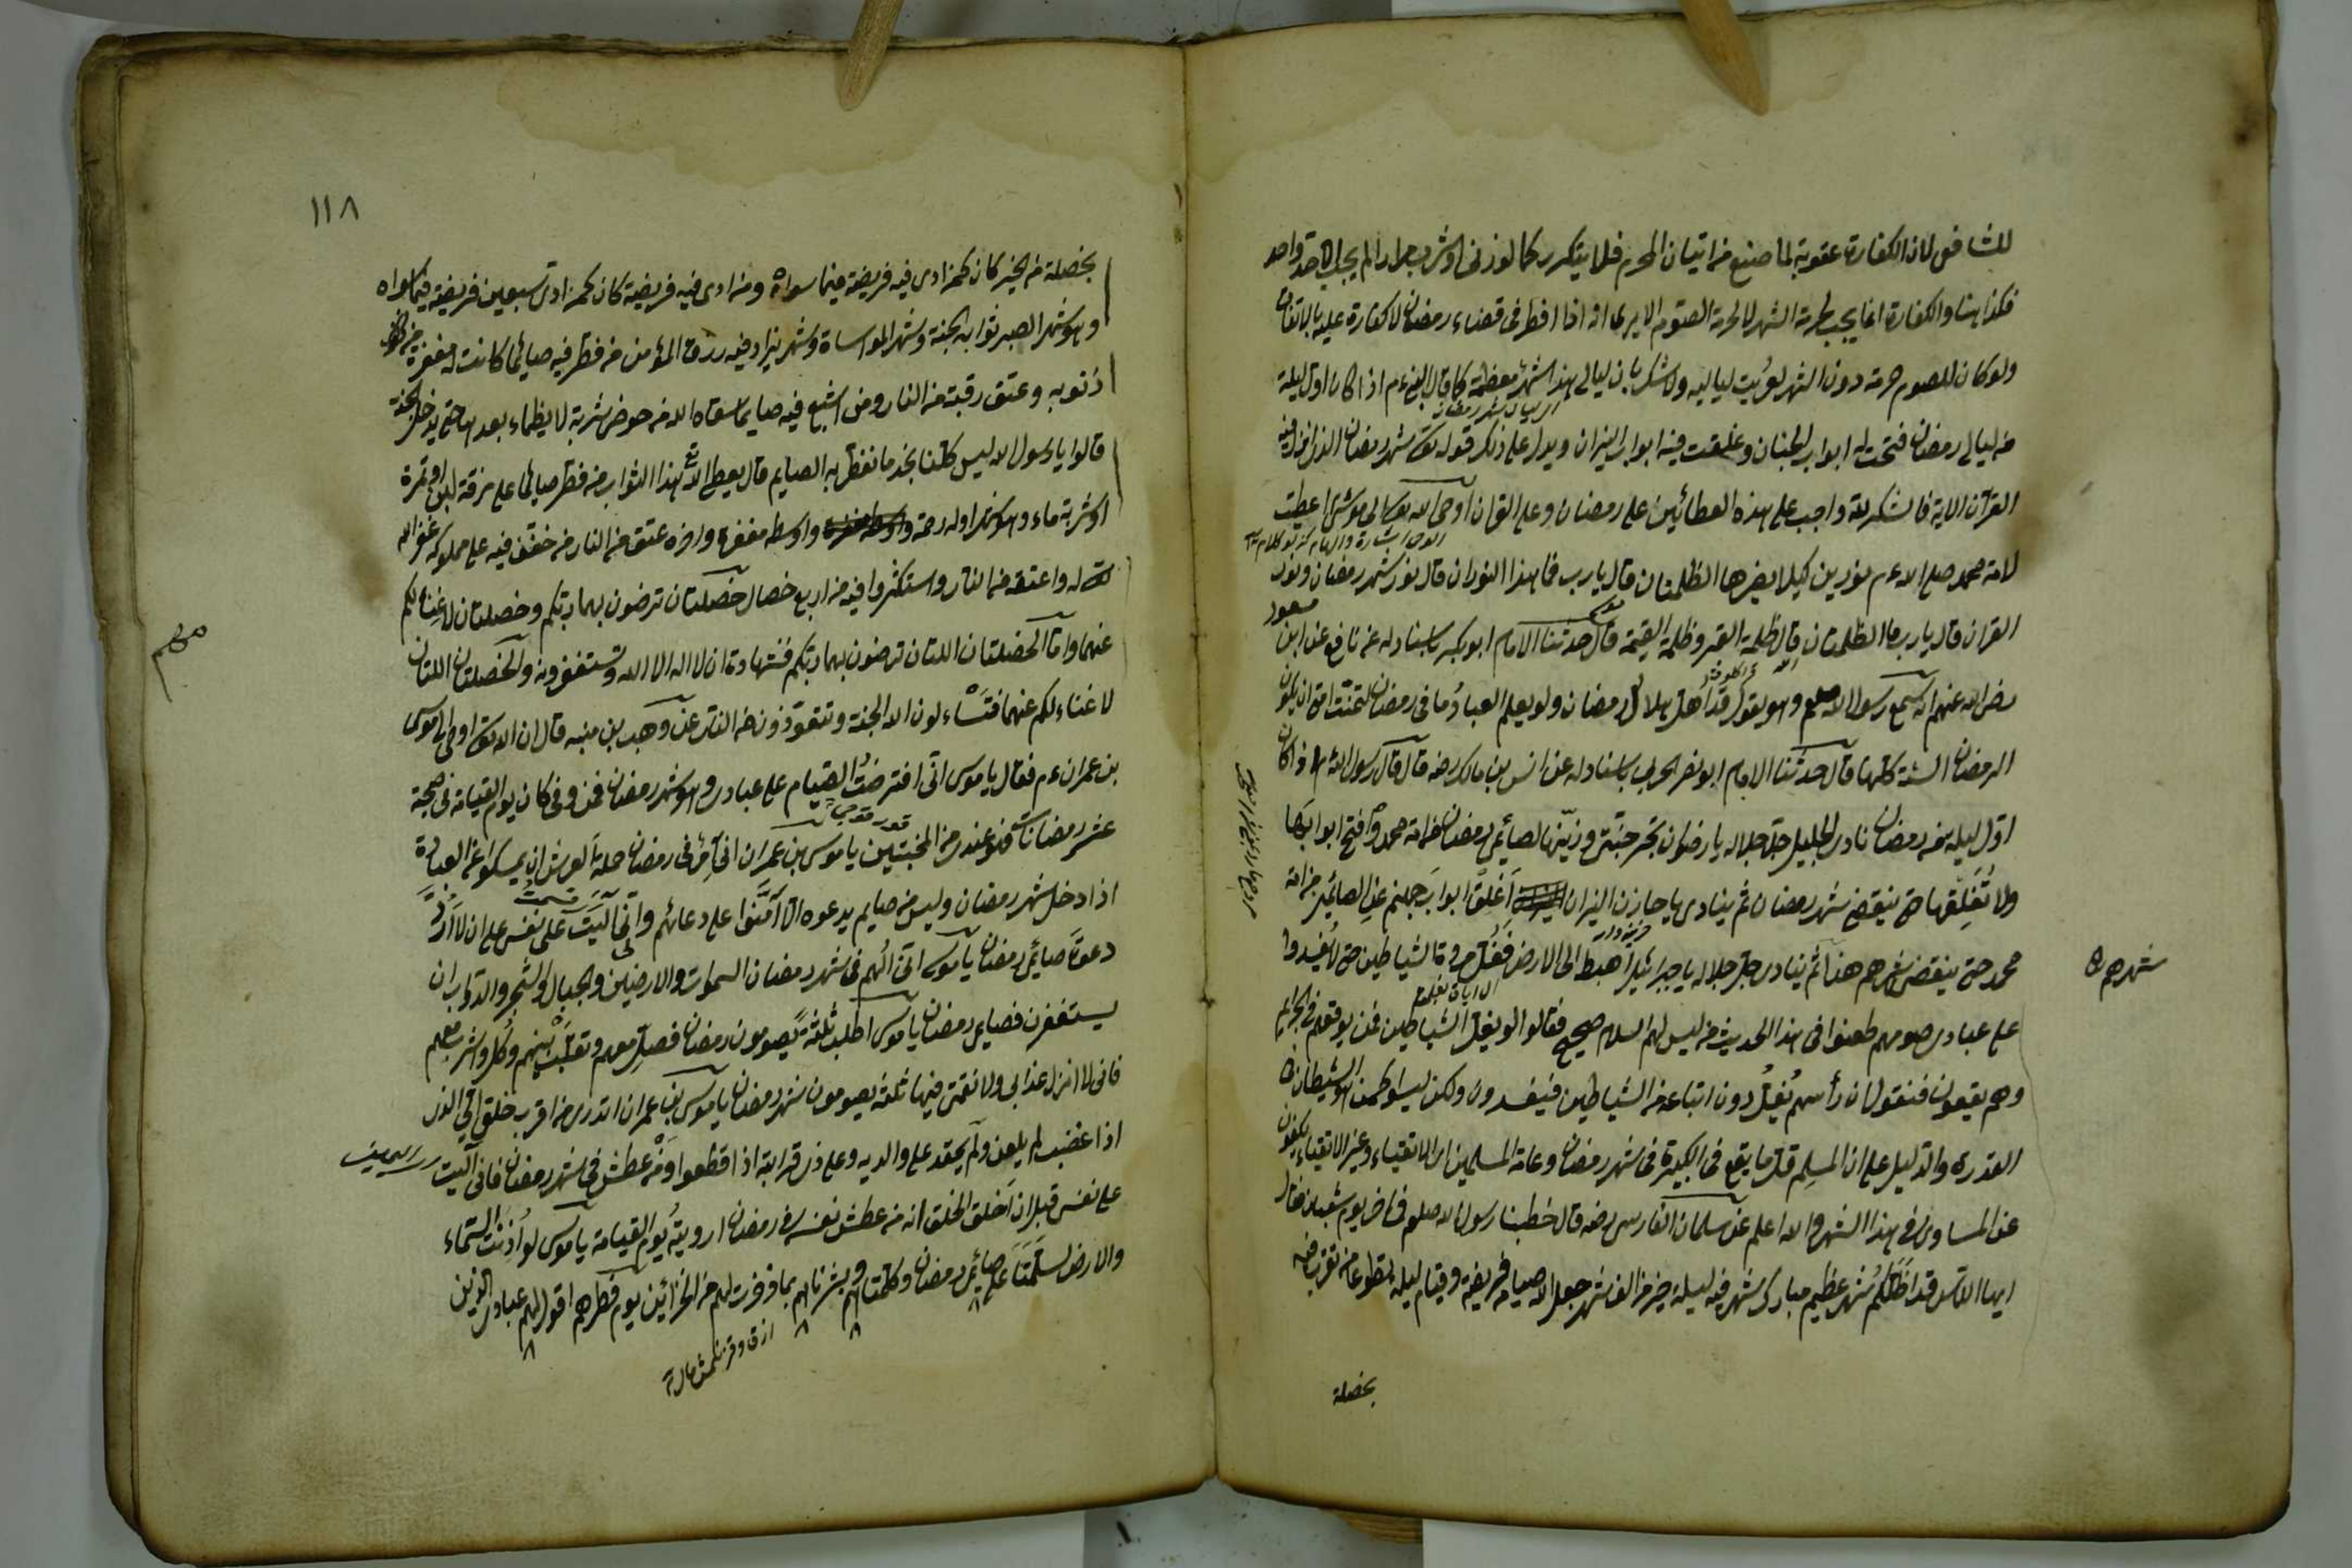 للشافعى لان الكفارة عقوبة لما صنع من اتيان المحرم فلما يتكرر كما لو زنى او شرب مرارا لم يجب الا حد واحد
فكذا هنا والكفارة انما يجب لحرمة الشهر لا لحرمة الصوم الا يرى انه اذا افطر فى قضاء رمضان لا كفارة عليه بالاتفاق
ولو كان للصوم حرمة دون الشهر لعريت لياليه ولا شك بان ليالى هذا الشهر معظمة كما قال النبى ءم اذا كان اول ليلة
من ليالى رمضان فتحت له ابواب الجنان وغلقت فيه ابواب النيران ويدل على ذلك قوله تع شهر رمضان الذى انزل فيه
القرآن الاية فالشكر لله واجب على هذه العطائين على رمضان وعلى القران اوحى الله تعالى الى موسى اعطيت
لامة محمد صلى الله ءم نورين كيلا يضرها الظلمتان قال يا رب فما هذا النوران قال نور شهر رمضان ونور
القران قال يا رب ما الظلمتان قال ظلمة القبر وظلمة القيمة قال حدثنا الامام ابو بكر باسناد له عن نافع عن ابن مسعود
رضى الله عنهم انه سمع رسول الله صلعم وهو يقول قد اهل هلال رمضان ولو يعلم العباد ما فى رمضان لتمنت امتى ان يكون
الرمضان السنة كلها قال حدثنا الامام ابو نصر الحربى باسناد له عن انس بن مالك رضه قال قال رسول الله اذا كان
اول ليلة من رمضان نادى الجليل جل جلاله يا رضوان نجر جنتى وزينها لصائمى رمضان من امة محمد وافتح ابوابها
ولا تغلقها حتى ينقضى شهر رمضان ثم ينادى يا خازن النيران اغلق ابواب جهنم عن الصائمين من امة
محمد حتى ينقضى شهرهم هذا ثم ينادى جل جلاله يا جبرائيل اهبط الى الارض فغل مردة الشياطين حتى لا يفسدوا
شهرهم
على عبادى صومهم طعنوا فى هذا الحديث من ليس لهم السلام صحيح فقالوا لو يغل الشياطين فمن يوقعهم فى الجرايم
وهم يقعون فنقول ان رأسهم يغل دون اتباعه من الشياطين فيفسدون ولكن ليسوا كمن هو الشيطان
القدرة والدليل على ان المسلم قل ما يقع فى الكبيرة فى شهر رمضان وعامة المسلمين اى الاتقياء وغير الاتقياء يكفون
عن المساوى فى هذا الشهر والله اعلم عن سلمان الفارسى رضه قال خطبنا رسول الله صلعم فى اخر يوم شعبان فقال
ايها الناس قد اظلكم شهر عظيم مبارك شهر فيه ليلة خير من الف شهر جعل الله صيامه فريضة وقيام ليله تطوعا من تقرب فيه
بخصلة
١١٨
بخصلة من الخير كان كمن ادى فيه فريضة فيما سواه ومن ادى فيه فريضة كان كمن ادى سبعين فريضة فيما سواه
وهو شهر الصبر ثوابه الجنة وشهر المواساة وشهر يزاد فيه رزق المؤمن من فطر فيه صائما كانت له مغفرة من
ذنوبه وعتق رقبة من النار ومن اشبع فيه صايما سقاه الله من حوض شربة لا يظماء بعدها حتى يدخل الجنة
قالوا يا رسول الله ليس كلنا نجد ما نفطر به الصايم قال يعطى الله تع هذا الثواب من فطر صائما على مزقة لبن او تمرة
او شربة ماء وهو شهر اوله رحمة واوسطه مغفرة واخره عتق من النار من خفف فيه على مملوكه غفر الله
تع له واعتقه من النار واستكثروا فيه من اربع خصال خصلتان ترضون بهما ربكم وخصلتان لا غناء لكم
عنهما واما الخصلتان اللتان ترضون بهما ربكم فشهادة ان لا اله الا الله وتستغفرونه والخصلتان اللتان
لا غناء لكم عنهما فتساءلون الله الجنة وتتعوذون من النار عن وهب بن منبه قال ان الله تع اوحى الى موسى
بن عمران ءم فقال يا موسى انى افترضت الصيام على عبادى وهو شهر رمضان فمن وفى كان يوم القيامة فى صحيفة
عشر رمضانات فهو عندى من المخبتين يا موسى بن عمران انى آمر فى رمضان حملة العرش ان يمسكوا عن العبادة
اذا دخل شهر رمضان وليس من صايم يدعوه الا آمنوا على دعائهم وانى آليت على نفسى على ان لا ارد
دعوة صائمى رمضان يا موسى انى الهم فى شهر رمضان السموات والارضين والجبال والشجر والدواب ان
يستغفرن لصايمى رمضان يا موسى اطلب ثلثة يصومون رمضان فصل معهم وتقلب بينهم وكل واشرب معهم
فانى لا انزل عذابى ولا نقمتى فيها ثلثة يصومون شهر رمضان يا موسى بن عمران اتدرى من اقرب خلقى الى الذى
اذا غضب لم يلعن ولم يحقد على والديه وعلى ذى قرابته اذا قطعوا ومن عطش فى شهر رمضان فانى آليت
على نفسى قبل ان اخلق الخلق انه من عطش نفسه فى رمضان ارويته يوم القيامة يا موسى لو اذنت السماء
والارض لسلمتا على صائمى رمضان وكلمتاهم وبشرتاهم بما وفرت لهم من الخزائن يوم فطرهم اقول لهم عبادى الذين